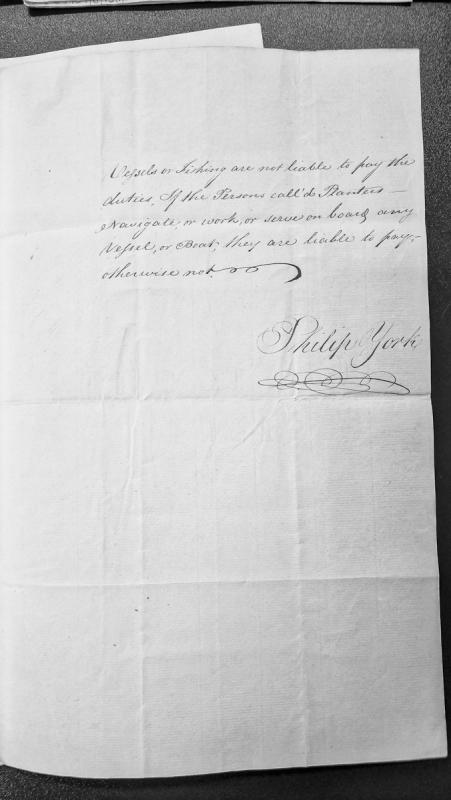 Vessels or Fishing are not liable to pay the
duties, If the Persons call'd Planters —
Navigate, or work, or serve on board any
Vessel, or Boat; they are liable to pay,
otherwise not.
Philip York